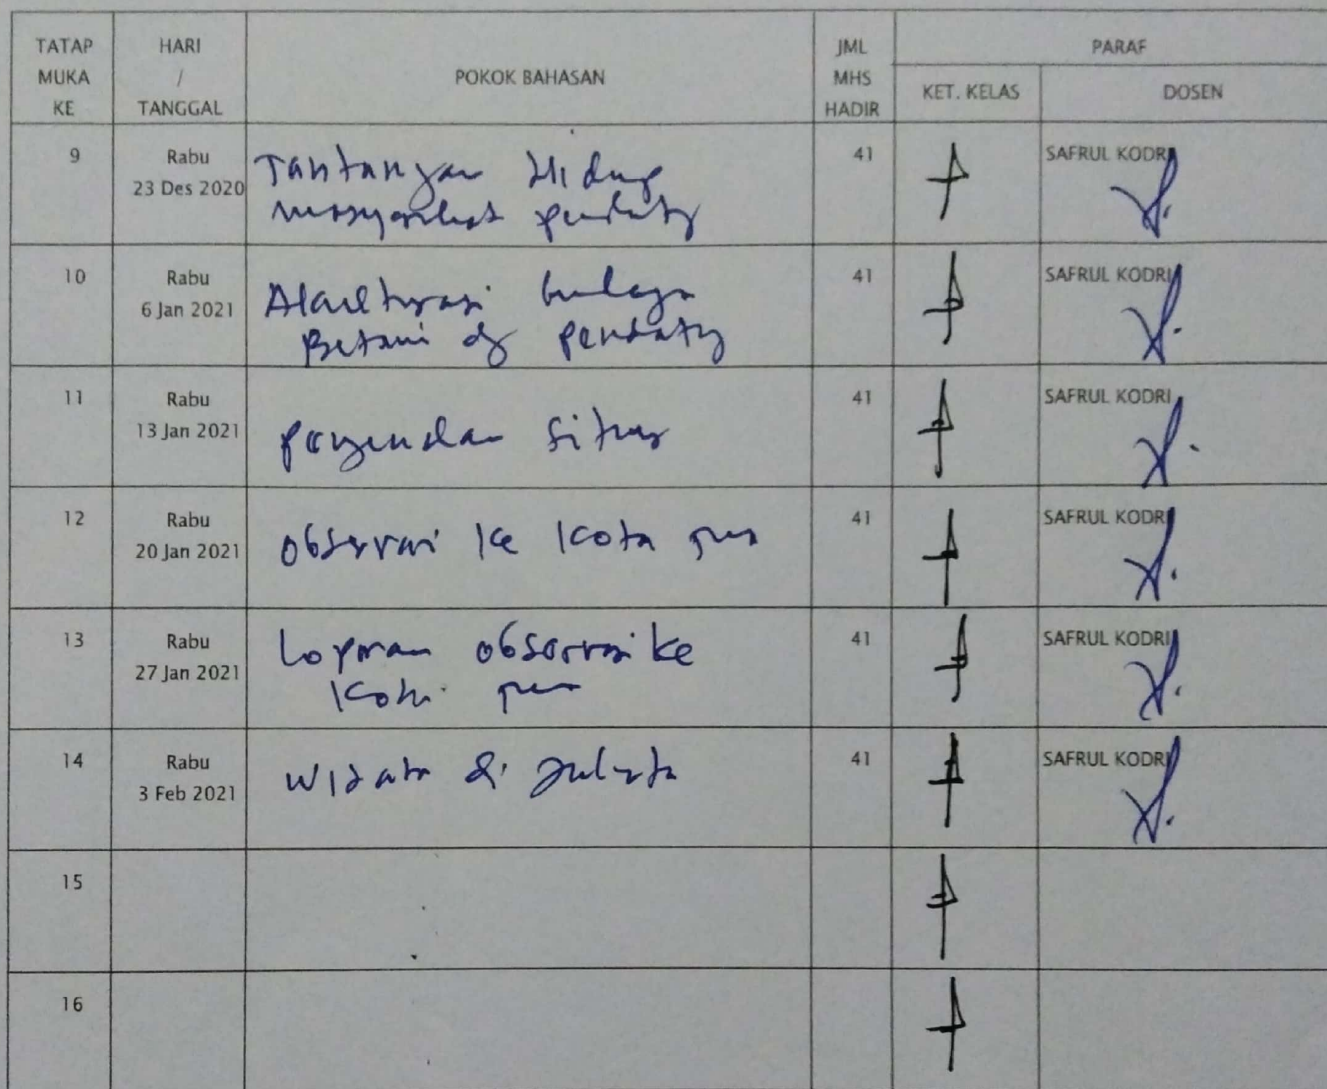 TATAP MUKA KE
HARI / TANGGAL
POKOK BAHASAN
JML MHS HADIR
PARAF
KET. KELAS
DOSEN
9
Rabu
23 Des 2020
Tantangan Hidup
masyarakat
41
SAFRUL KODRI
10
Rabu
6 Jan 2021
Betawi dg
41
SAFRUL KODRI
11
Rabu
13 Jan 2021
Situs
41
SAFRUL KODRI
12
Rabu
20 Jan 2021
Observasi ke Kota
41
SAFRUL KODRI
13
Rabu
27 Jan 2021
Laporan observasi ke
Kota
41
SAFRUL KODRI
14
Rabu
3 Feb 2021
Wisata di Jakarta
41
SAFRUL KODRI
15
16